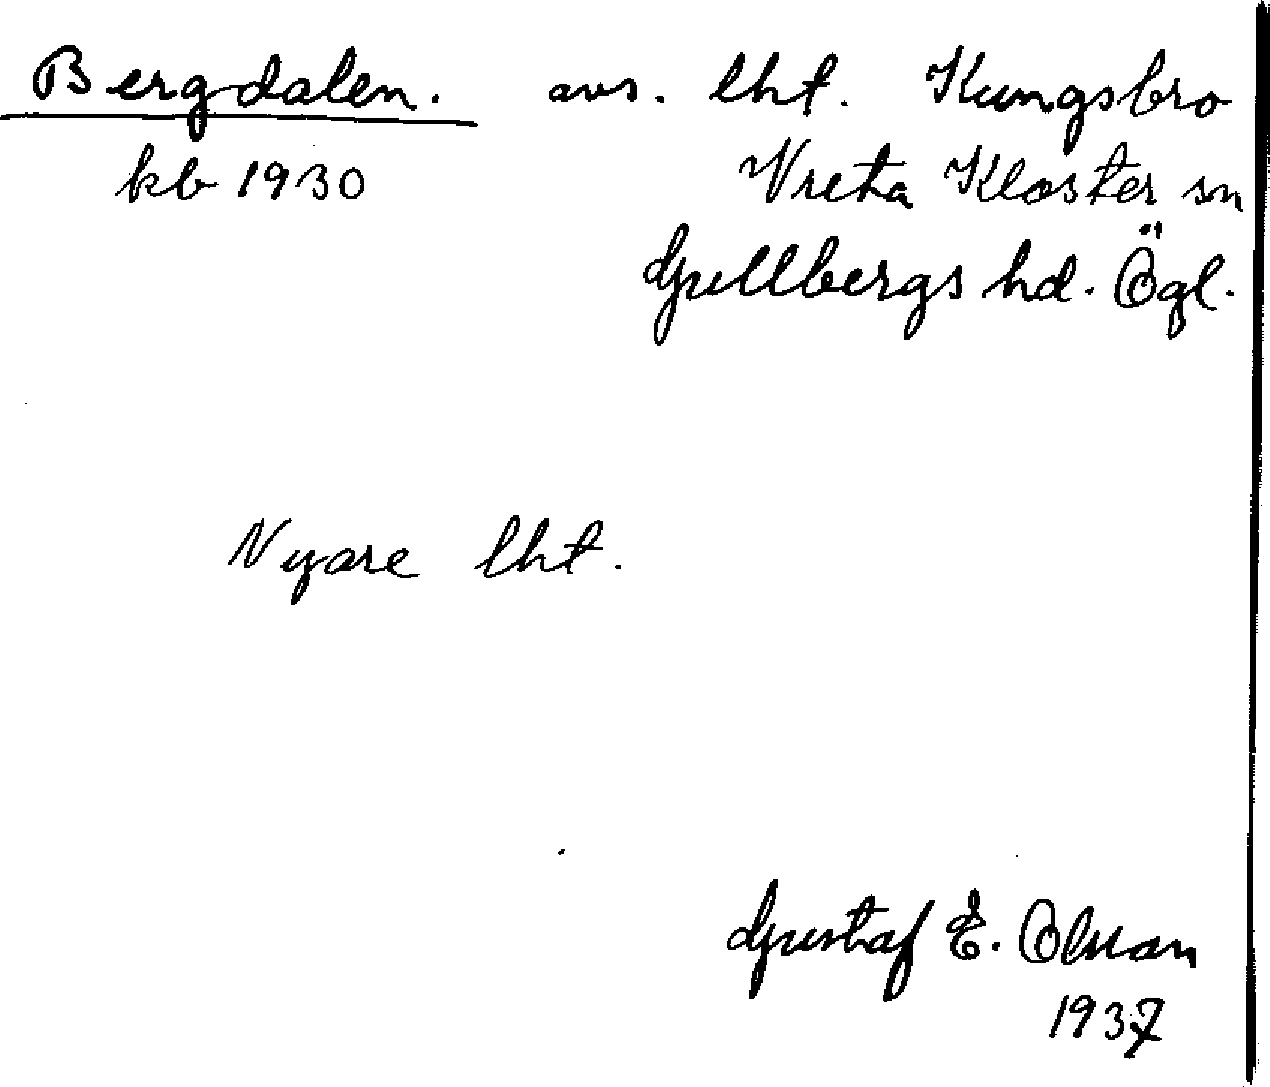 Bergdalen. avs. lht. Kungsbro
kb 1930 Vreta Kloster sn
Gullbergs hd. Ögl.
Nyare lht.
Gustaf E. Olsson
1937